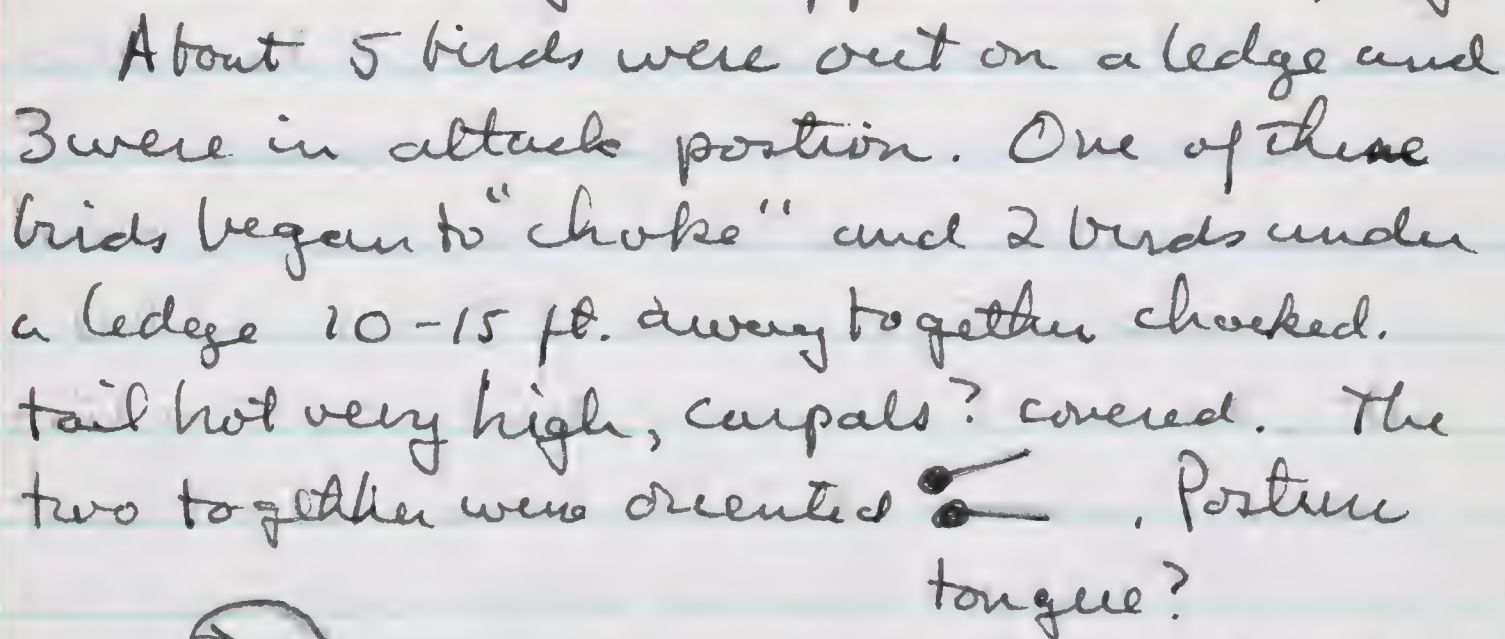 About 5 birds were out on a ledge and
3 were in attack postion. One of these
birds began to "choke" and 2 birds under
a ledege 10-15 ft. away together chocked.
tail not very high, carpals? covered. The
two together were oriented . Posture
tongue?